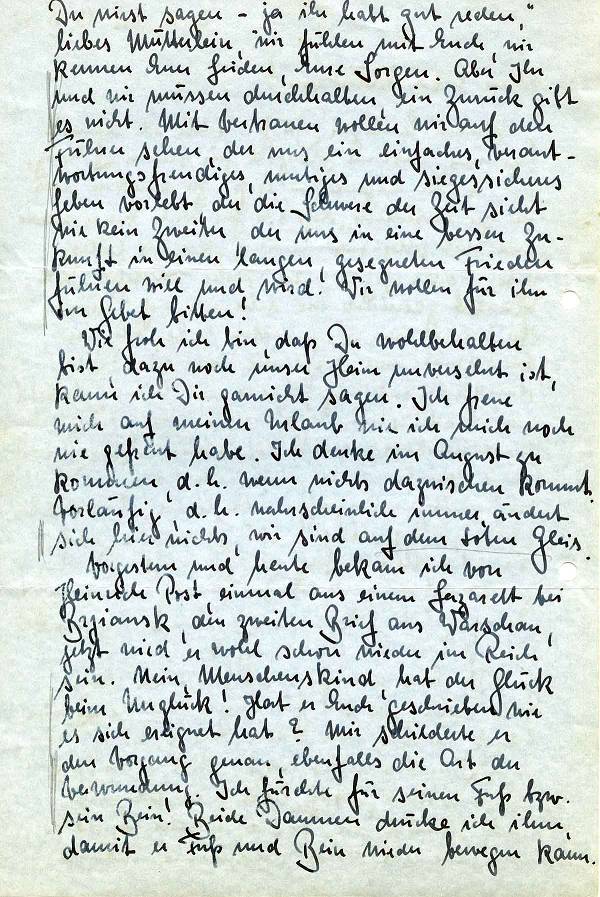 Du wirst sagen – ja ihr habt gut reden,"
liebes Mütterlein, wir fühlen mit Euch, wir
kennen Euer Leiden, Eure Sorgen. Aber Ihr
und wir müssen durchhalten, ein Zurück gibt
es nicht. Mit Vertrauen wollen wir auf den
Führer sehen, der uns ein einfaches, verant-
wortungsfreudiges, mutiges und siegessicheres
Leben vorlebt der die Schwere der Zeit sieht
wie kein Zweiter, der uns in eine bessere Zu-
kunft in einen langen, gesegneten Frieden
führen will und wird. Wir wollen für ihn
im Gebet bitten!
Wie froh ich bin, daß Du wohlbehalten
bist, dazu noch unser Heim unversehrt ist,
kann ich Dir garnicht sagen. Ich freue
mich auf meinen Urlaub wie ich mich noch
nie gefreut habe. Ich denke im August zu
kommen, d. h. wenn nichts dazwischen kommt.
Vorläufig, d. h. wahrscheinlich immer, ändert
sich hier nichts, wir sind auf dem toten Gleis.
Vorgestern und heute bekam ich von
Heinrich Post, einmal aus einem Lazarett bei
Brjansk, den zweiten Brief aus Warschau,
jetzt wird er wohl schon wieder im Reich
sein. Mein Menschenskind, hat der Glück
beim Unglück! Hat er Euch geschrieben wie
es sich ereignet hat? Mir schilderte er
den Vorgang genau, ebenfalls die Art der
Verwundung. Ich fürchte für seinen Fuß bzw.
sein Bein! Beide Daumen drücke ich ihm,
damit er Fuß und Bein wieder bewegen kann.